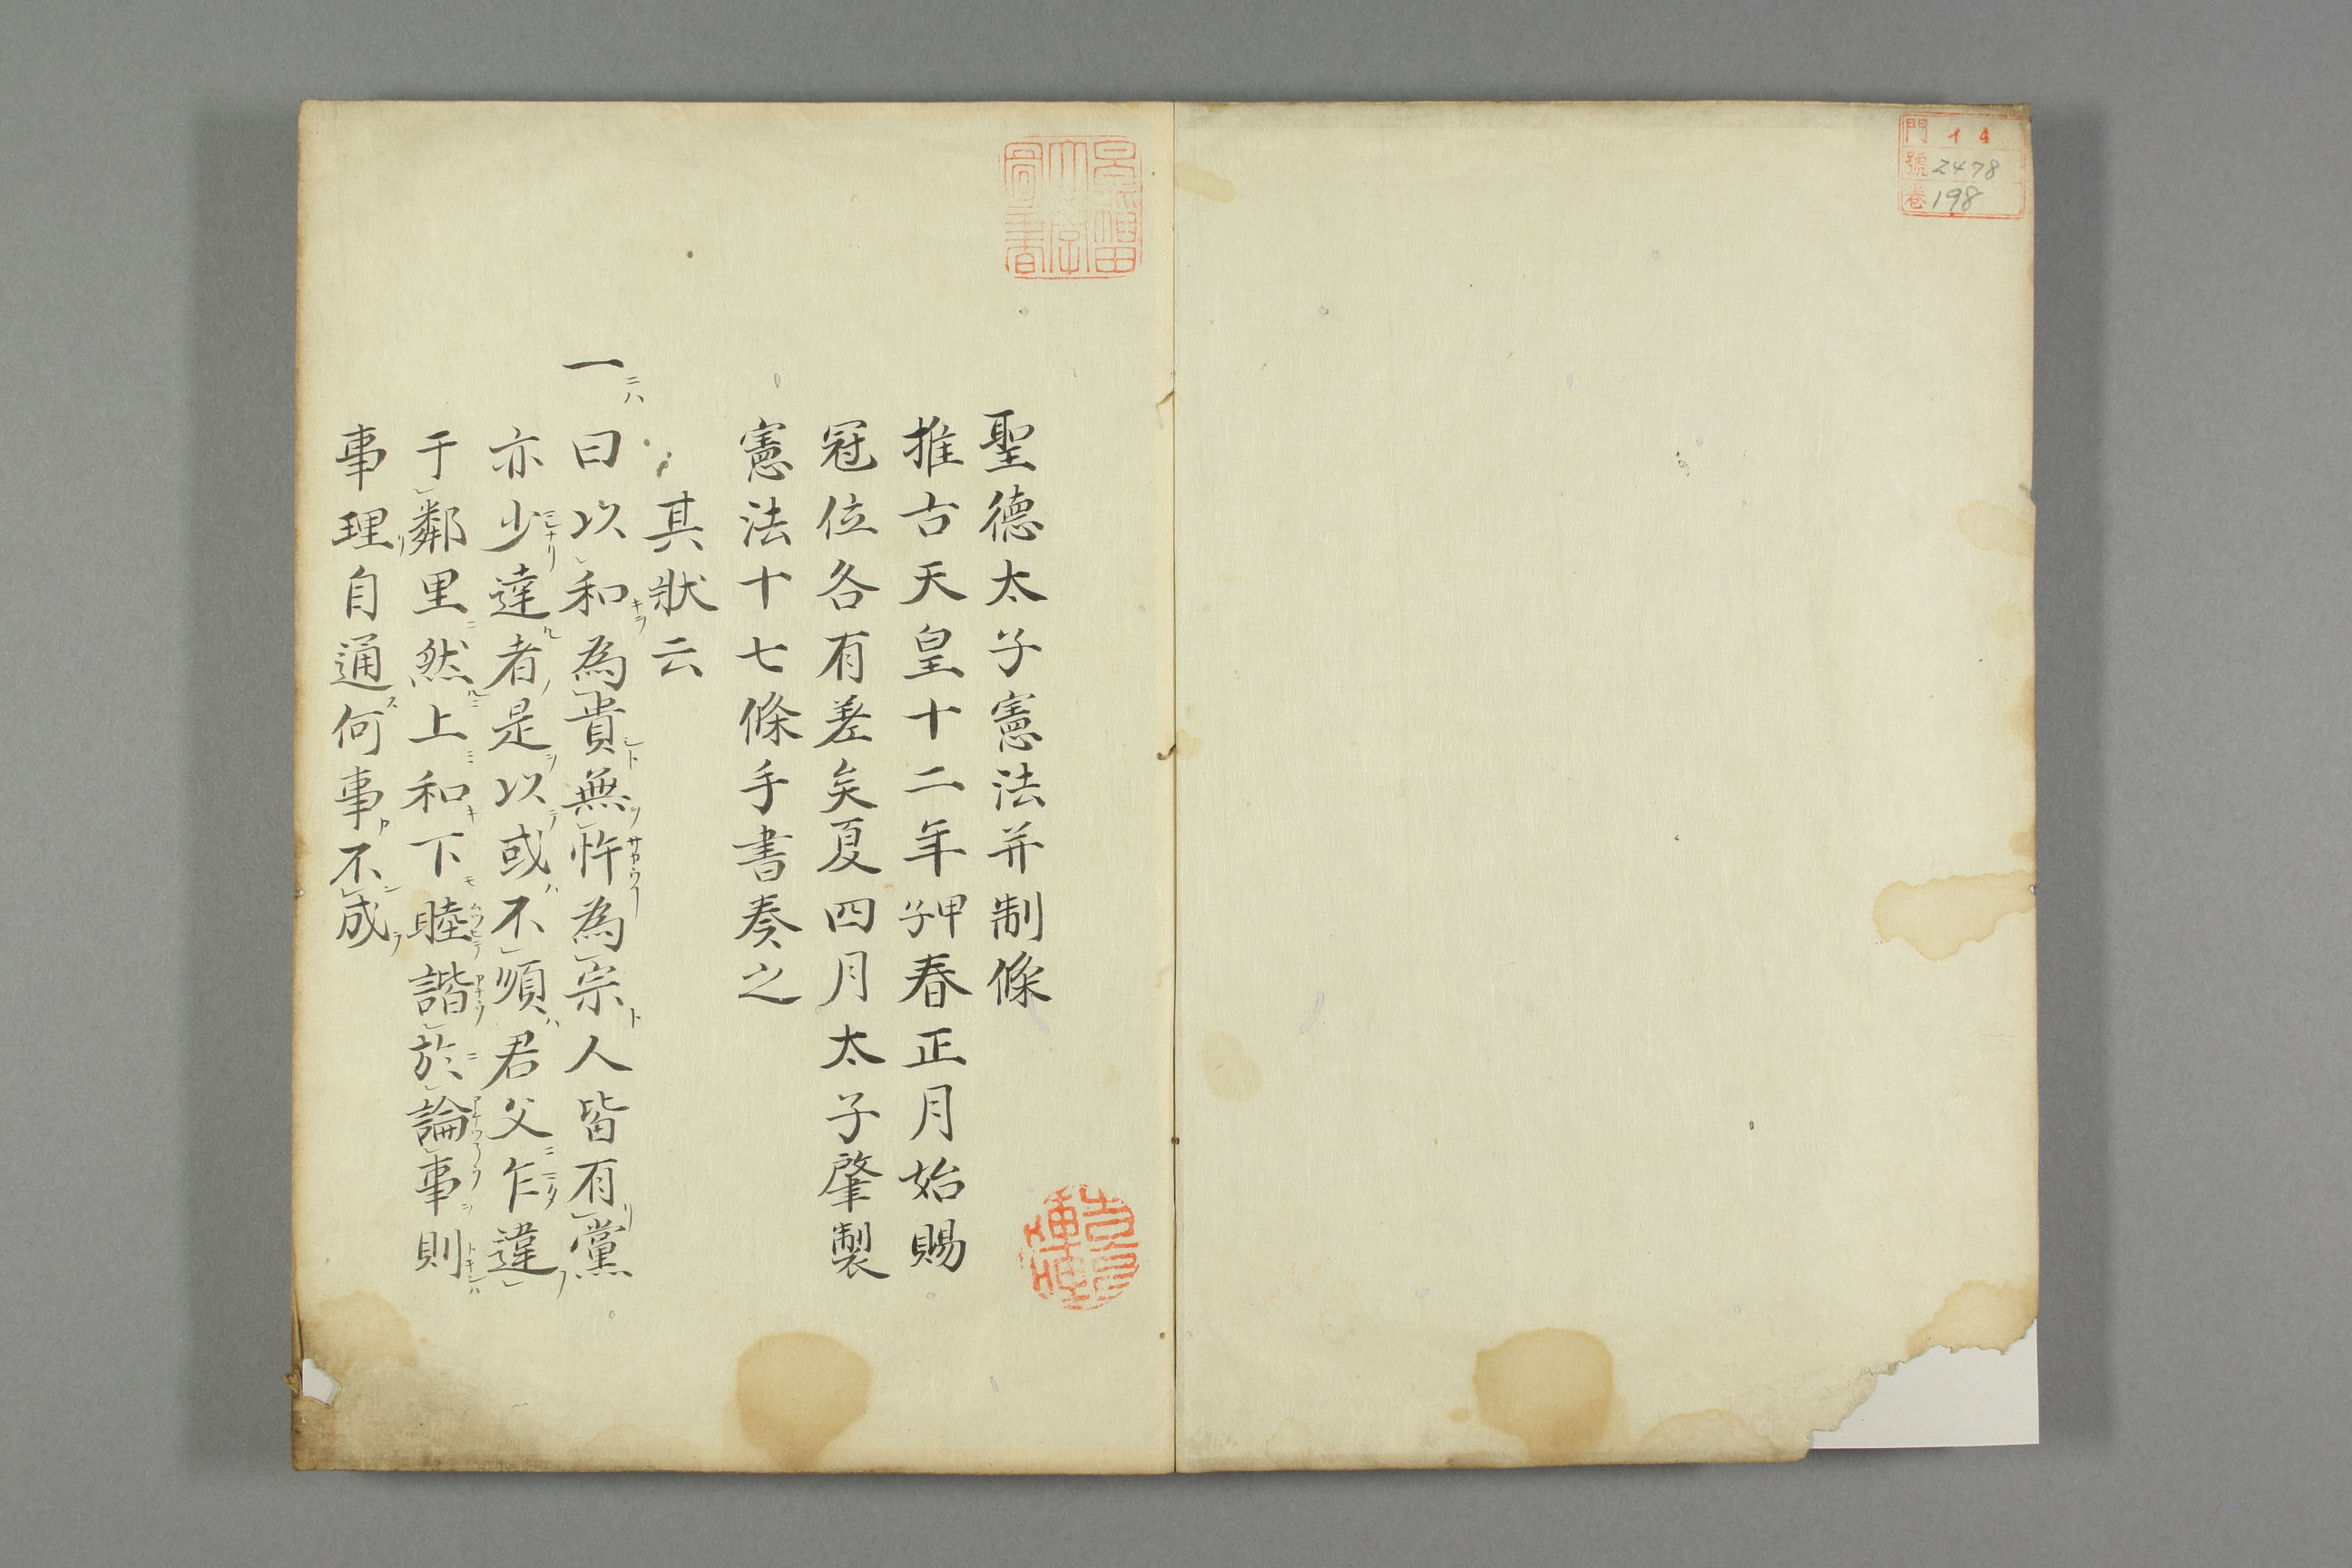 門 イ4
號 2478
卷 198
聖德太子憲法并制條
推古天皇十二年甲子春正月始賜
冠位各有差矣夏四月太子肇製
憲法十七條手書奏之
其狀云
一曰以和為貴無忤為宗人皆有黨
亦少達者是以或不順君父乍違
于鄰里然上和下睦諧於論事則
事理自通何事不成
早稲田大学圖書